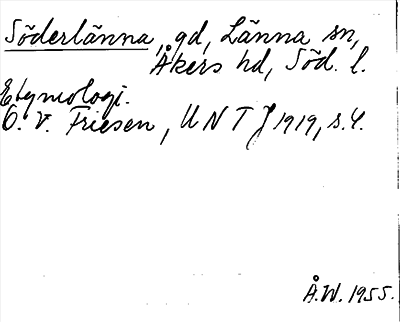 Söderlänna, gd, Länna sn,
Åkers hd, Söd. l.
Etymologi.
O. v. Friesen, UNT J 1919, s. 4.
Å.W. 1955.